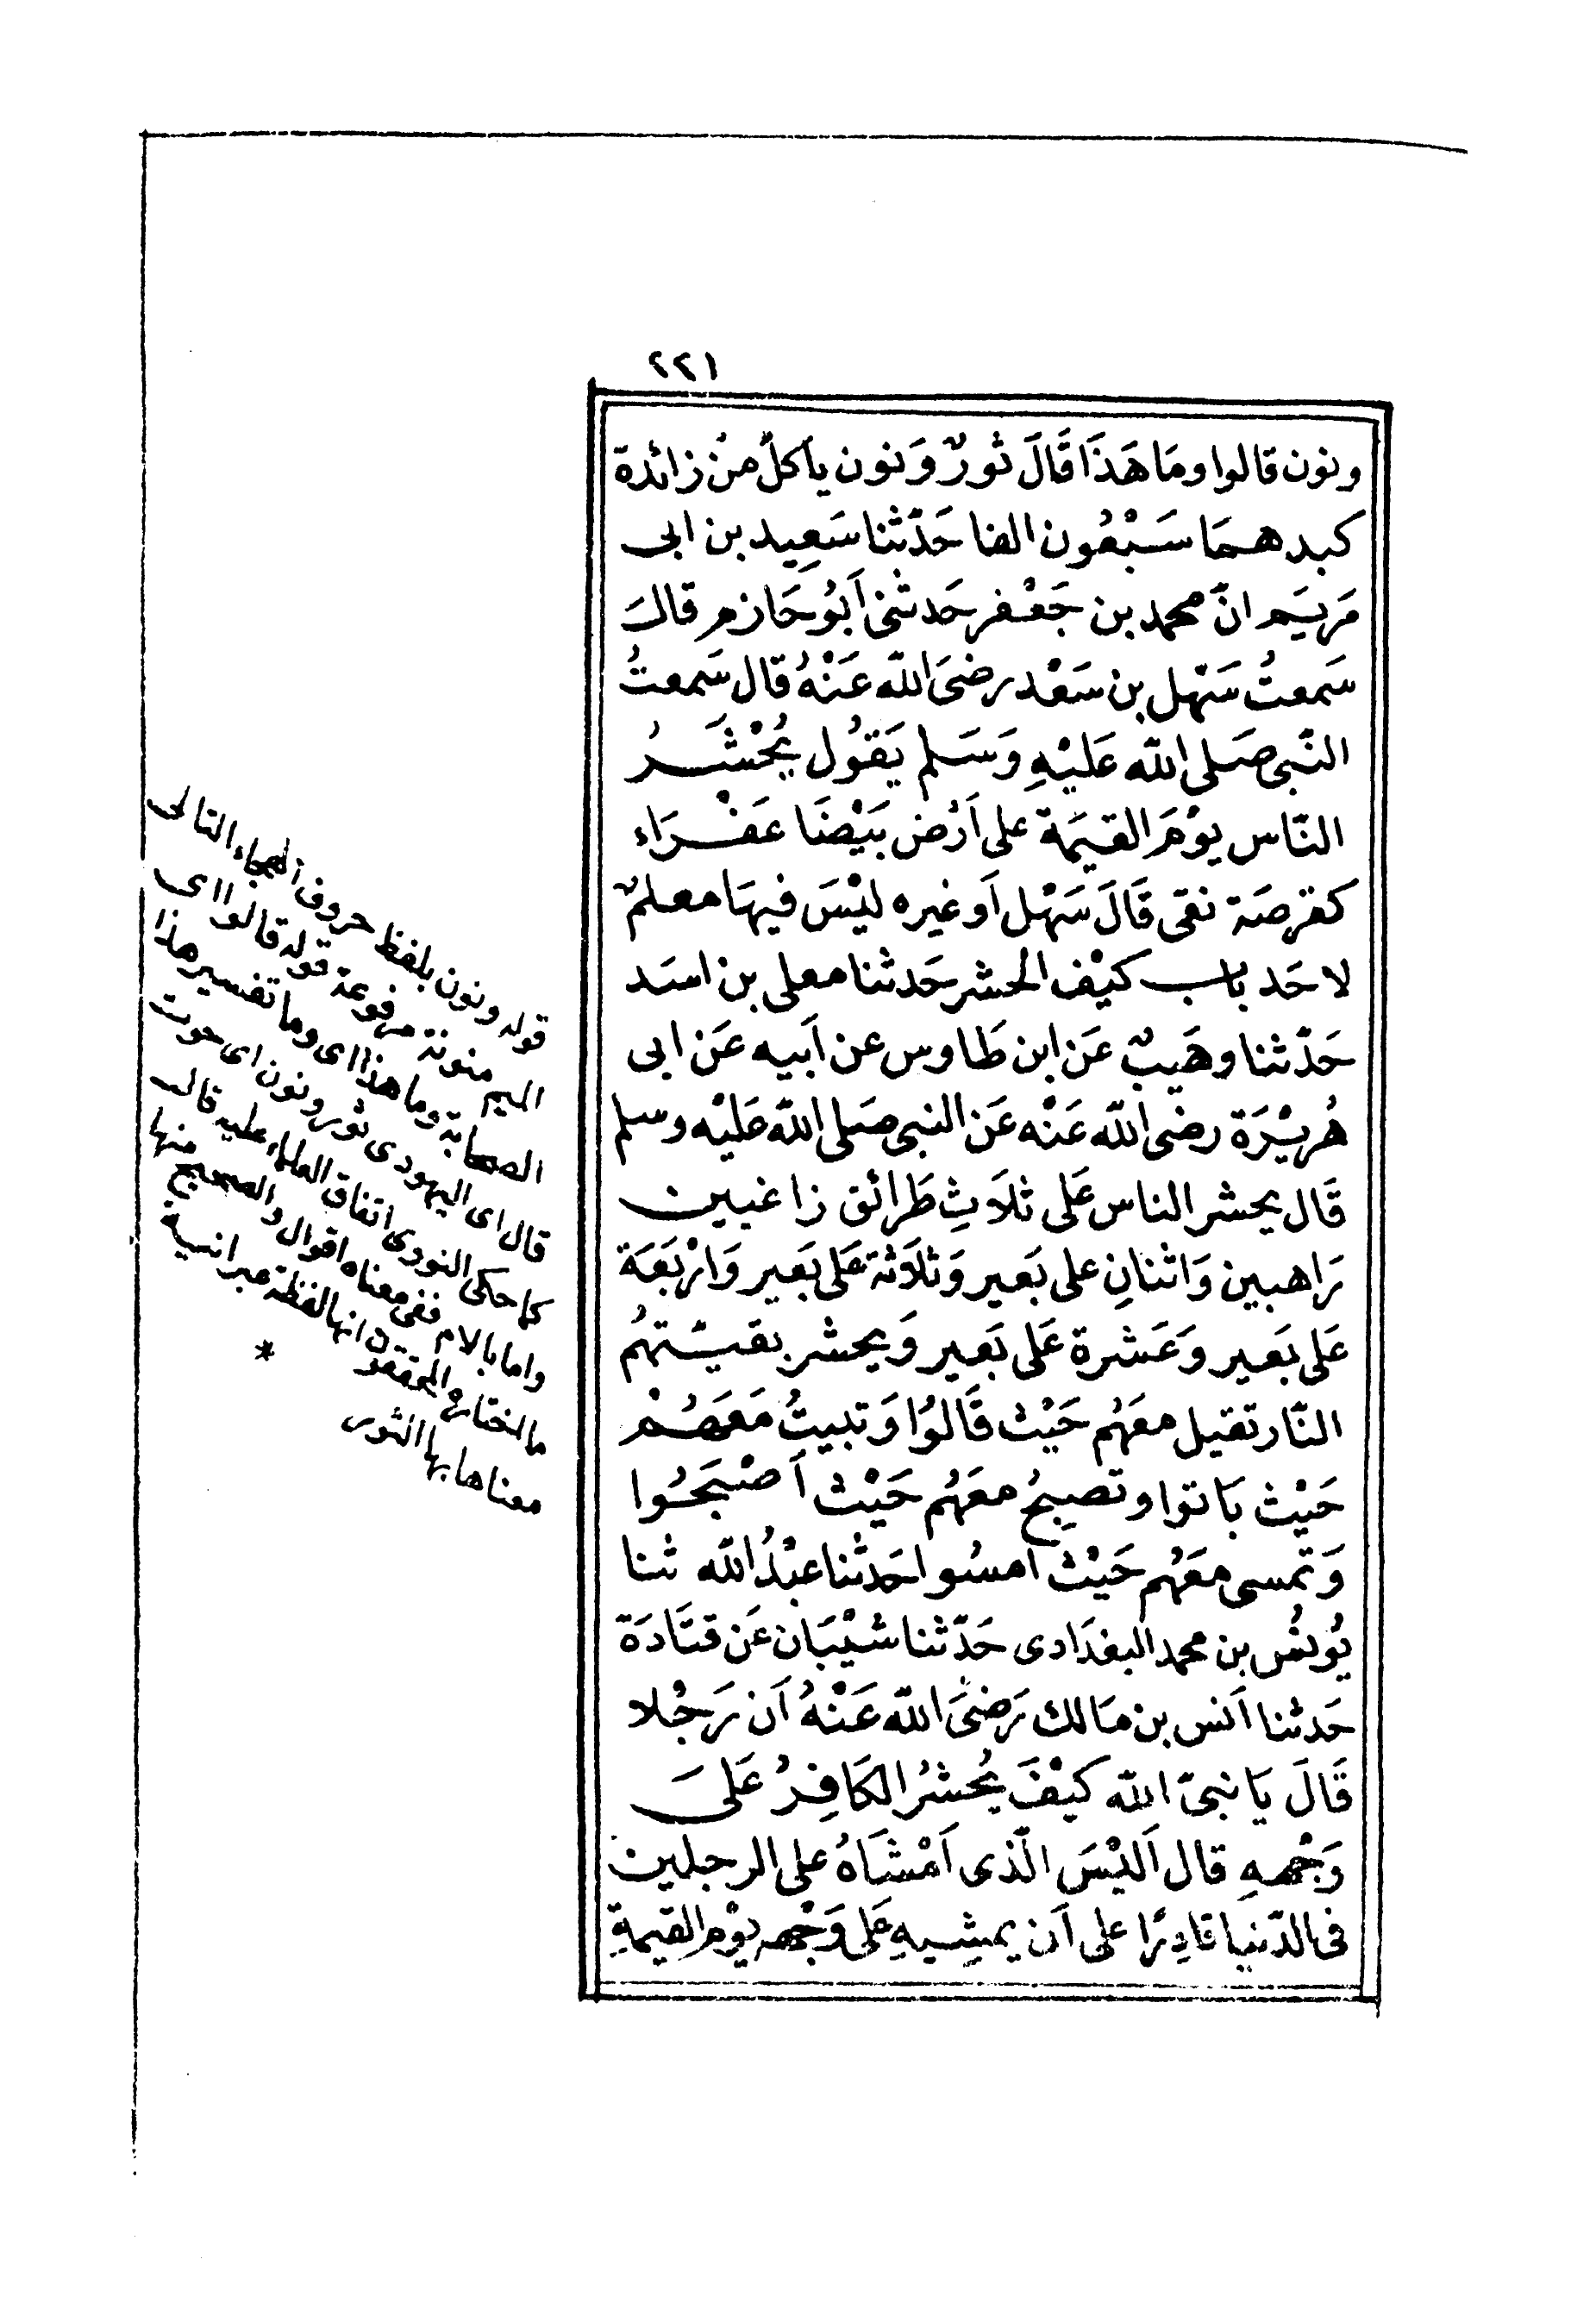 ٢٢١
ونون قالوا ومَا هَذَا قَالَ ثورٌ وَنون يأكلُ منْ زائدة
كبدهمَا سَبْعُون الفا حَدّثنا سَعِيد بن ابى
مَريَم انّ محمد بن جَعْفر حَدثنى اَبُو حَازم قالَ
سَمعتُ سَهْل بن سَعْد رضىَ اللّه عَنْهُ قال سَمعتُ
النّبى صَلى اللّه عَليْهِ وَسَلم يَقوُل يُحْشَرُ
النّاس يوْمَ القيمَة على اَرْض بَيْضَا عَفْرَاء
كقرصَة نقى قَالَ سَهْل اَو غيره ليْسَ فيهَا معلمٌ
لاحَد باب كيْف الحشر حَدثنا معلى بن اسَد
حَدّثنا وهَيبٌ عَن ابن طَاوس عن اَبيه عَن ابى
هُريْرَة رضى اللّه عَنْه عَن النبى صَلى اللّه عَليْه وسلم
قَال يحشر الناس عَلى ثلاَثِ طَرائق زاغبين
رَاهبين وَاثنانِ على بَعير وَثلاَثة عَلى بَعير وَارْبَعَة
عَلى بَعير وَعَشرة عَلى بَعير وَيحشر بقيّتهمُ
النّار تقيل معَهُم حَيْث قَالوُا وَتبيتُ مَعَهُمْ
حَيْث بَاتوا وتصبحُ معَهُم حَيْث اَصْبَحُوا
وَتمسى معَهُم حَيْث اَمسُوا حَدثنا عبْدُ اللّه ثنا
يُونسُ بن محمد البغدَادى حَدّثنا شيْبَان عَن قتَادَة
حَدثنا اَنس بن مَالك رَضىَ اللّه عَنْهُ اَن رَجُلا
قَالَ يَا نبىّ اللّه كيْفَ يُحشرُ الكَافِرُ عَلىَ
وَجْههِ قال اَليْسَ الّذى اَمْشَاهُ على الرجلين
فى الدّنيا قادِرًا على اَن يمشِيهِ عَلى وَجْهه يوْم القيمةِ
قوله ونون بلفظ حروف الهجاء التالى
الميم منونة مرفوعة قوله قالوا اى
الصحابة وما هذا اى وما تفسير هذا
قال اى اليهودى ثور ونون اى حوت
كما حكى النووى اتفاق العلماء عليه قال
واما بالام ففى معناه اقوال والصحيح منها
ما اختاره المحققون انها لفظة عبرانية
معناها بها الثور *